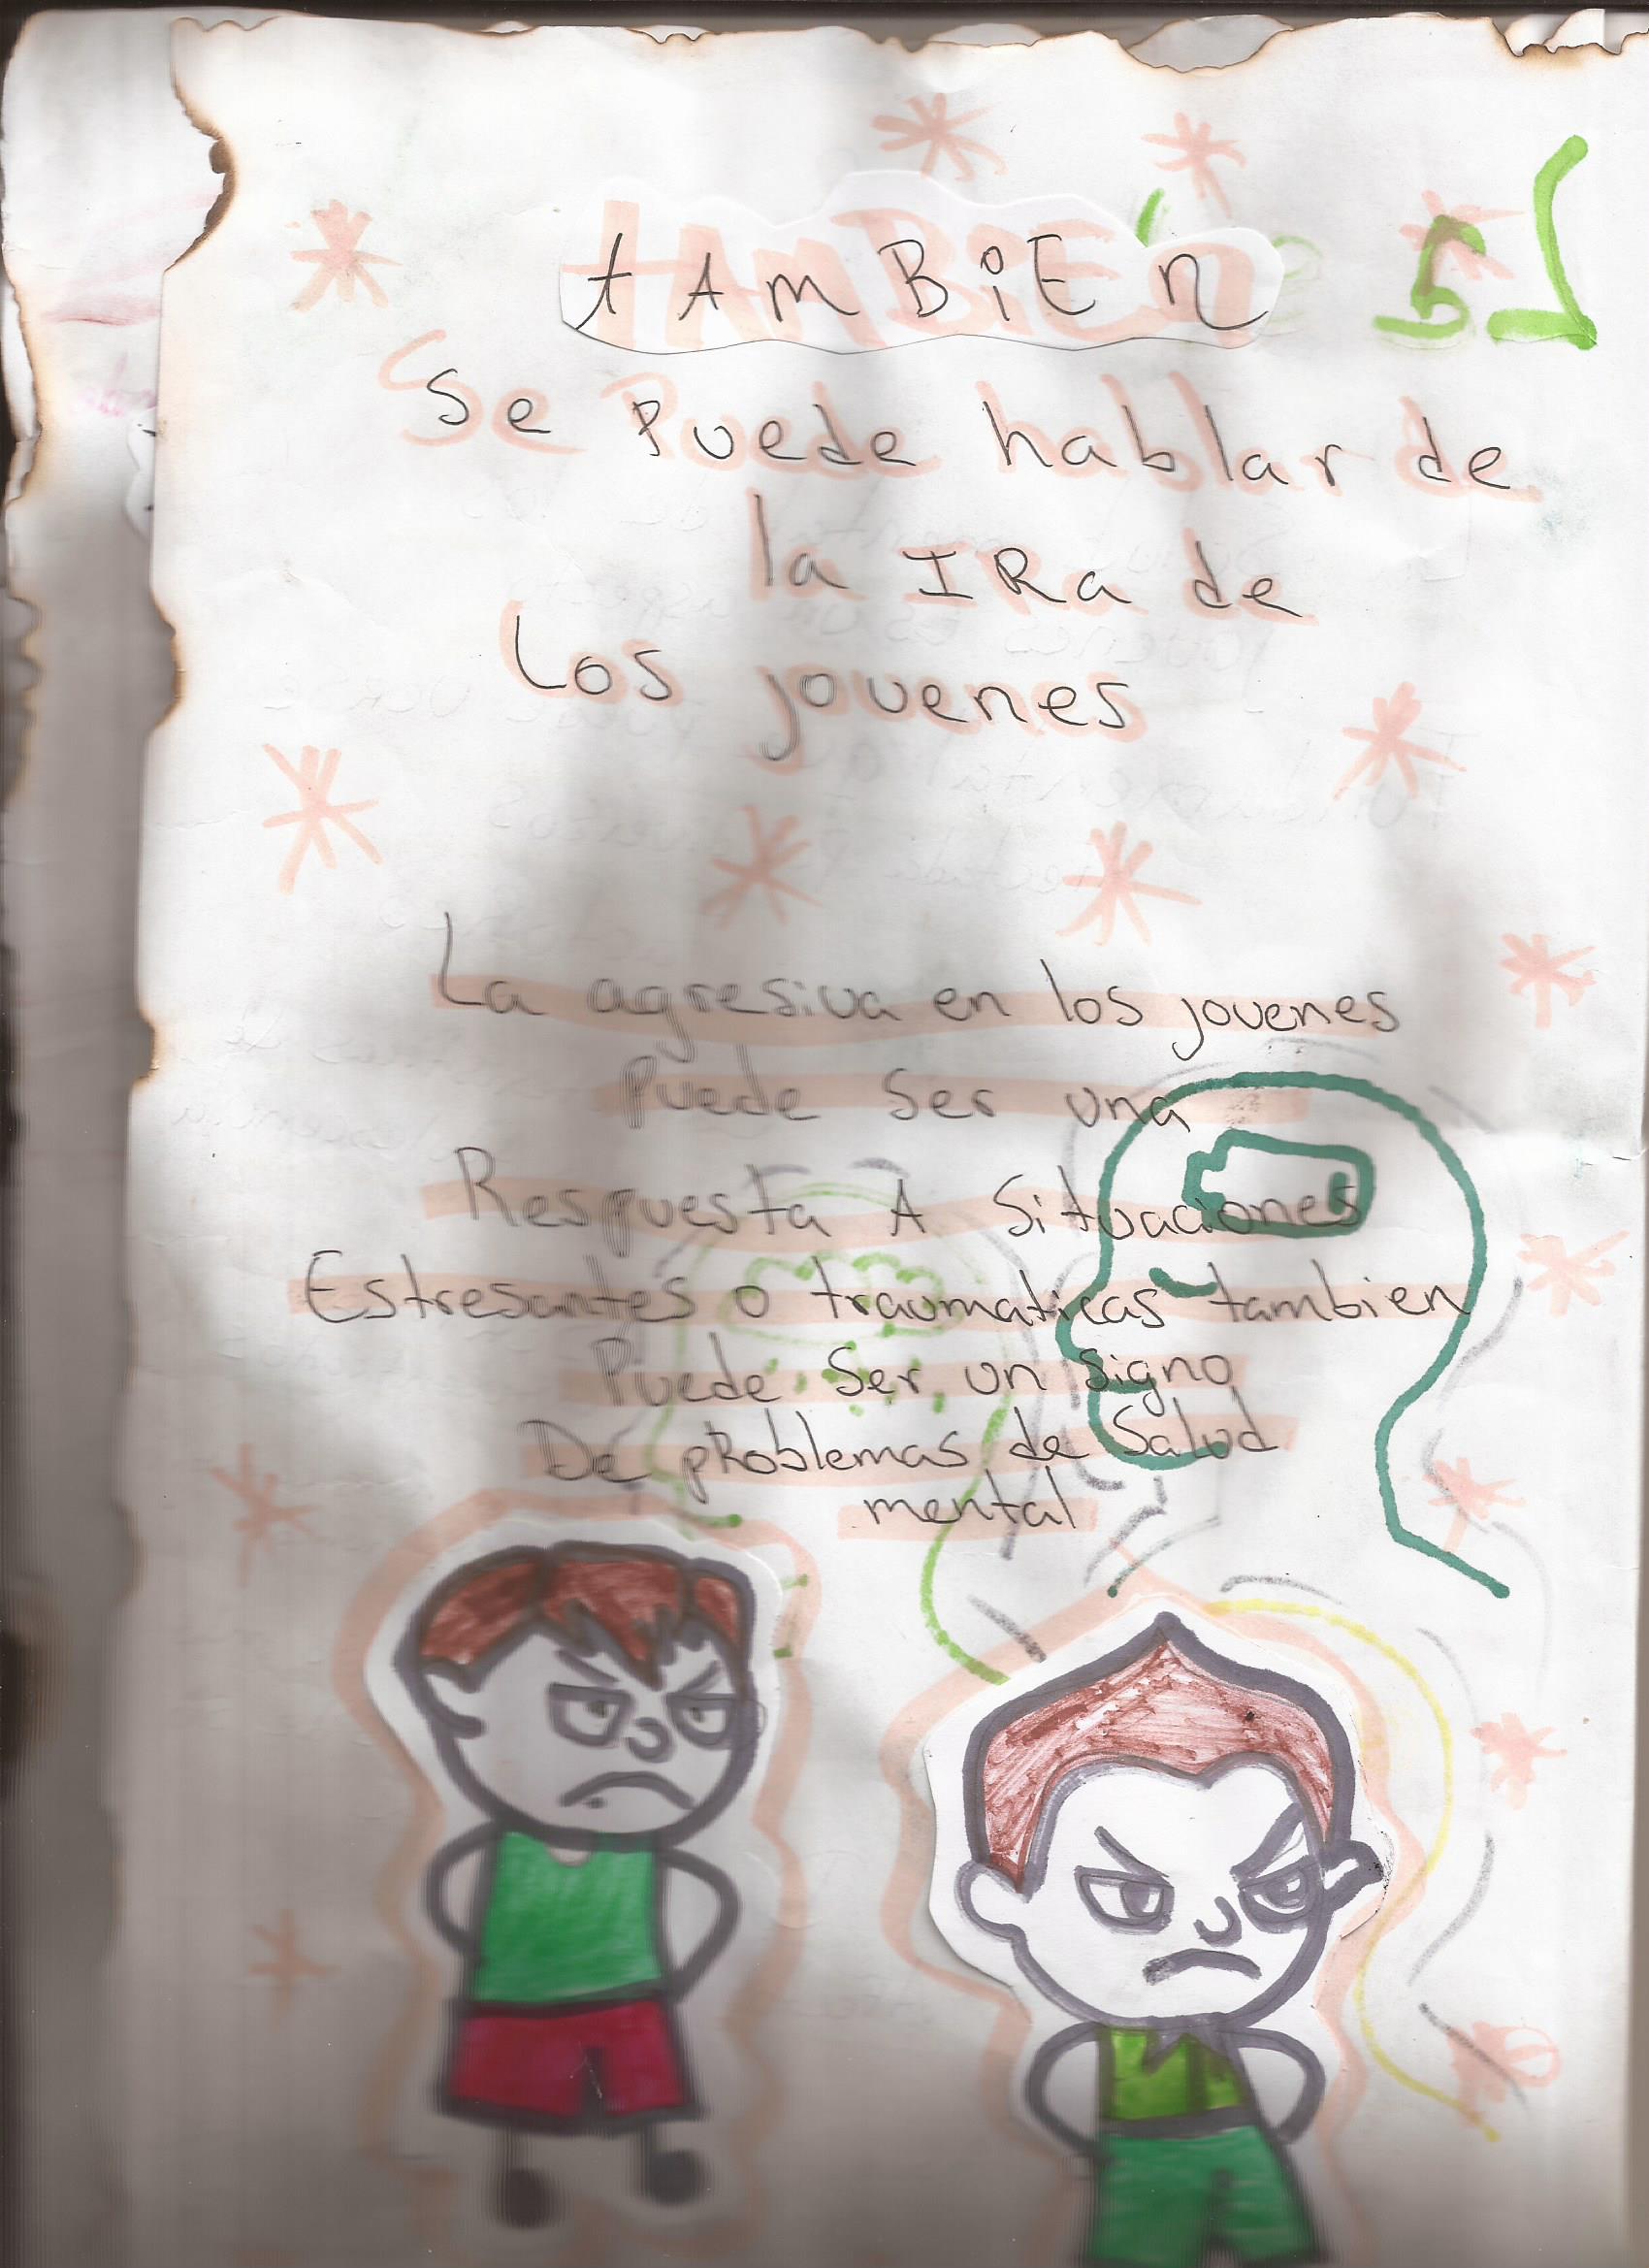 tAmBiEn
Se Puede hablar de
la IRa de
Los jovenes
La agresiva en los jovenes
Puede Ser una
Respuesta A Situaciones
Estresantes o traumaticas tambien
Puede Ser un Signo
De pRoblemas de Salud
mental